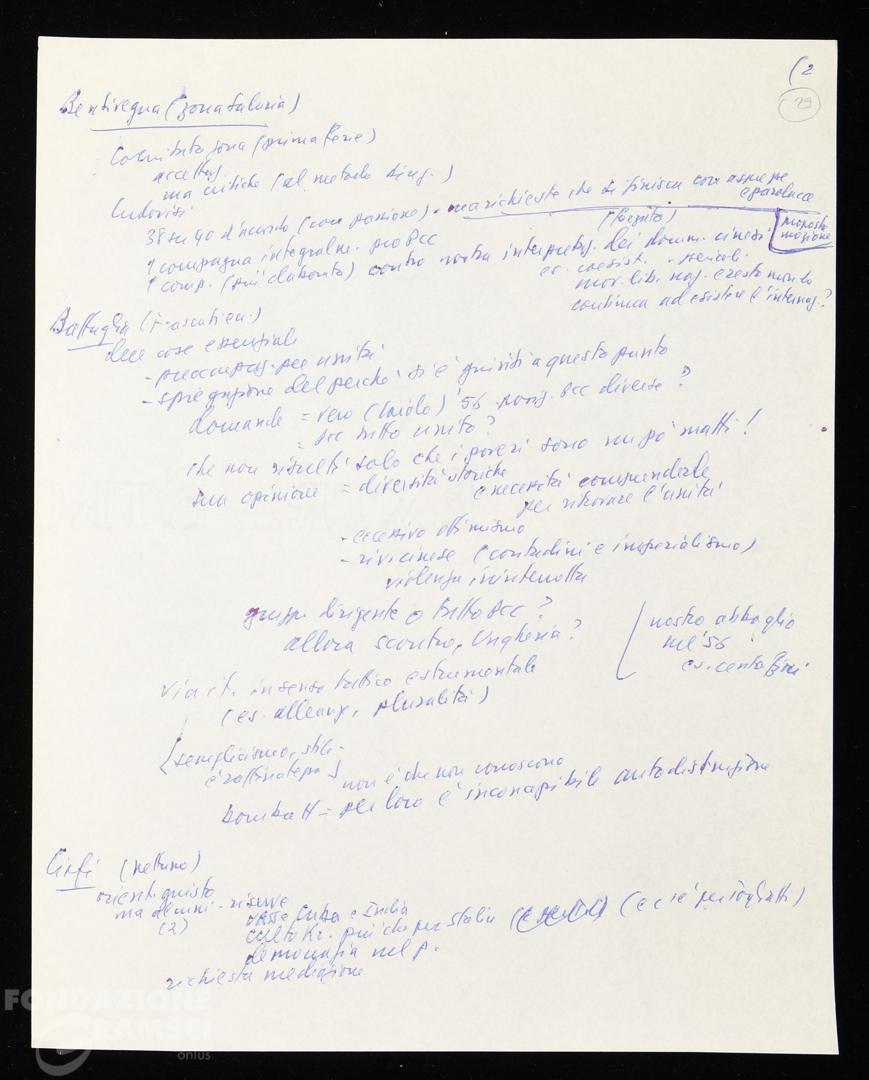 (2
29
Bentivegna (zona Salaria)
Comitato zona (prima fase)
accettaz.
ma critiche (al metodo
Ludovisi
38 su 40 d'accordo (con passione) - ma richieste che si finisca con asprezze
e parolacce
1 compagna integralm. pro PCC
proposta
mozione
1 comp. (più elaborata) contro nostra interpretaz. dei docum. cinesi
es. coesist. - pericoli
mov. lib. naz. e resto mondo
continua ad esistere l'internaz.?
Battaglia (Tuscolana)
due cose essenziali
- preoccupaz. per unità
- spiegazione del perché si è giunti a questo punto
domande = vero ( ) '56 posiz. PCC diverse?
= PCC tutto unito?
che non risulti solo che i cinesi sono un po' matti!
sua opinione = diversità storiche
e necessità comprenderle
per ritrovare l'unità
- eccessivo ottimismo
- riv. cinese (contadini e imperialismo)
violenza ininterrotta
gruppo dirigente o tutto PCC?
allora scontro, Ungheria?
nostro abbaglio
nel '56
es. cento fiori
via it. in senso tattico e strumentale
(es. alleanze, pluralità)
semplicismo, stile -
è raffinatezza
non è che non conoscono
bomba H = per loro è inconcepibile autodistruzione
Ciofi (Nettuno)
orient. giusto
ma alcuni - riserve
(2)
Cuba e India
culto Kr. più che per Stalin (e c'è per Togliatti)
democrazia nel p.
richiesta mediazione
FONDAZIONE
GRAMSCI
onlus